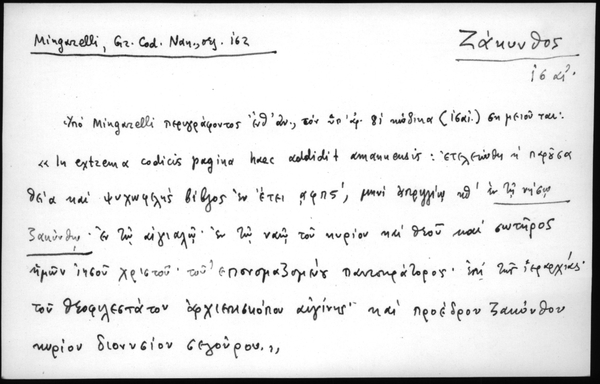 Mingarelli, Gr. Cod. Nan., σελ. 162
Ζάκυνθος
16 αἰ.
Ὑπό Mingarelli περιγράφοντος ἐνθ' ἀν., τόν ὑπ' ἀρ. κώδικα (ις αἰ.) σημειοῦται:
« In extrema codicis pagina haec addidit amanuensis: ἐτελειώθη ἡ παροῦσα
θεία καὶ ψυχωφελής βίβλος ἐν ἔτει αφπς', μηνὶ ἀπριλίῳ κθ' ἐν τῇ νήσῳ
Ζακύνθῳ. Ἐν τῷ αἰγιαλῷ. ἐν τῷ ναῷ τοῦ κυρίου καὶ θεοῦ καὶ σωτῆρος
ἡμῶν ἰησοῦ χριστοῦ. τοῦ ἐπονομαζομένου παντοκράτορος. ἐπὶ τῆς ἱεραρχίας.
τοῦ θεοφιλεστάτου ἀρχιεπισκόπου αἰγίνης. καὶ προέδρου ζακύνθου
κυρίου διονυσίου σεγούρου.»